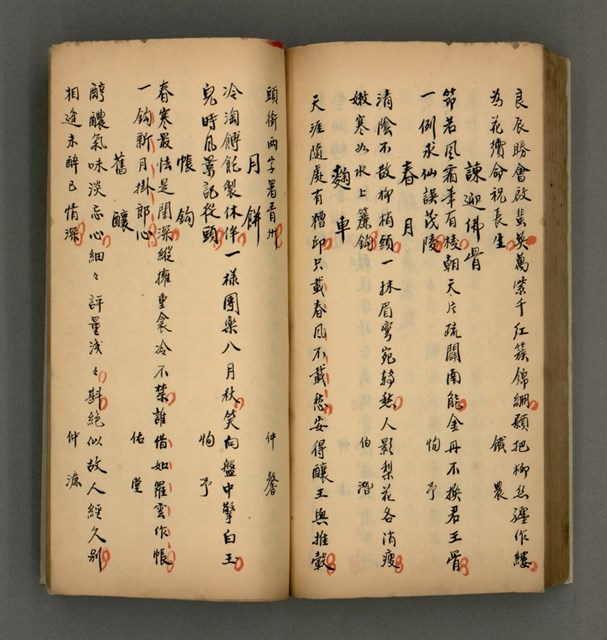 良辰勝會啟蜚英萬紫千紅簇錦綳願把柳絲纏作縷
為花續命祝長生　鐵農
諫迎佛骨
節若風霜李有棱朝天片疏闢南能金丹不換君王骨
一例求仙誤茂陵　恂予
春月
清陰不散柳梢頭一抹眉彎宛轉愁人影梨花各消瘦
嫩寒如水上簾鈎　伯潛
麴車
天涯隨處有糟邱只載春風不載愁安得釀王與推轂
頭銜兩字署青州　仲馨
月餅
冷淘餺飥製休侔一樣團欒八月秋笑向盤中擎白玉
兒時風景記從頭　恂予
帳鈎
春寒最怯是閨深縱擁重衾冷不禁誰借如羅雲作帳
一鈎新月掛郎心　佑堂
舊釀
醇醲氣味淡忘心細々評量淺々斟絕似故人經久別
相逢未醉已情深　仲漁